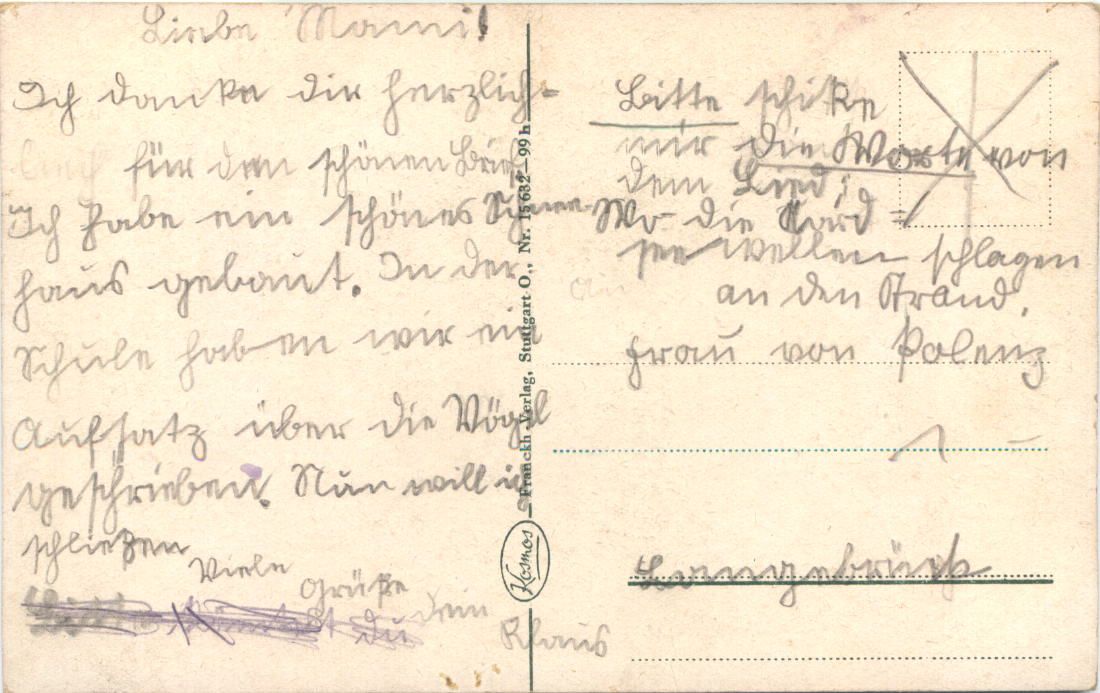 Liebe Mami!
Ich danke dir herzlich-
für den schönen Brief.
Ich habe ein schönes Schnee-
haus gebaut. In der
Schule haben wir ein
Aufsatz über die Vögel
geschrieben. Nun will ich
schließen
Viele
Grüße
du dein
Klaus
Franckh-Verlag, Stuttgart O., Nr. 15682—99h
Kosmos
Bitte schike
mir die Worte von
dem Lied:
Wo die Nord=
see wellen schlagen
an den Strand.
Frau von Polenz
Langebrück